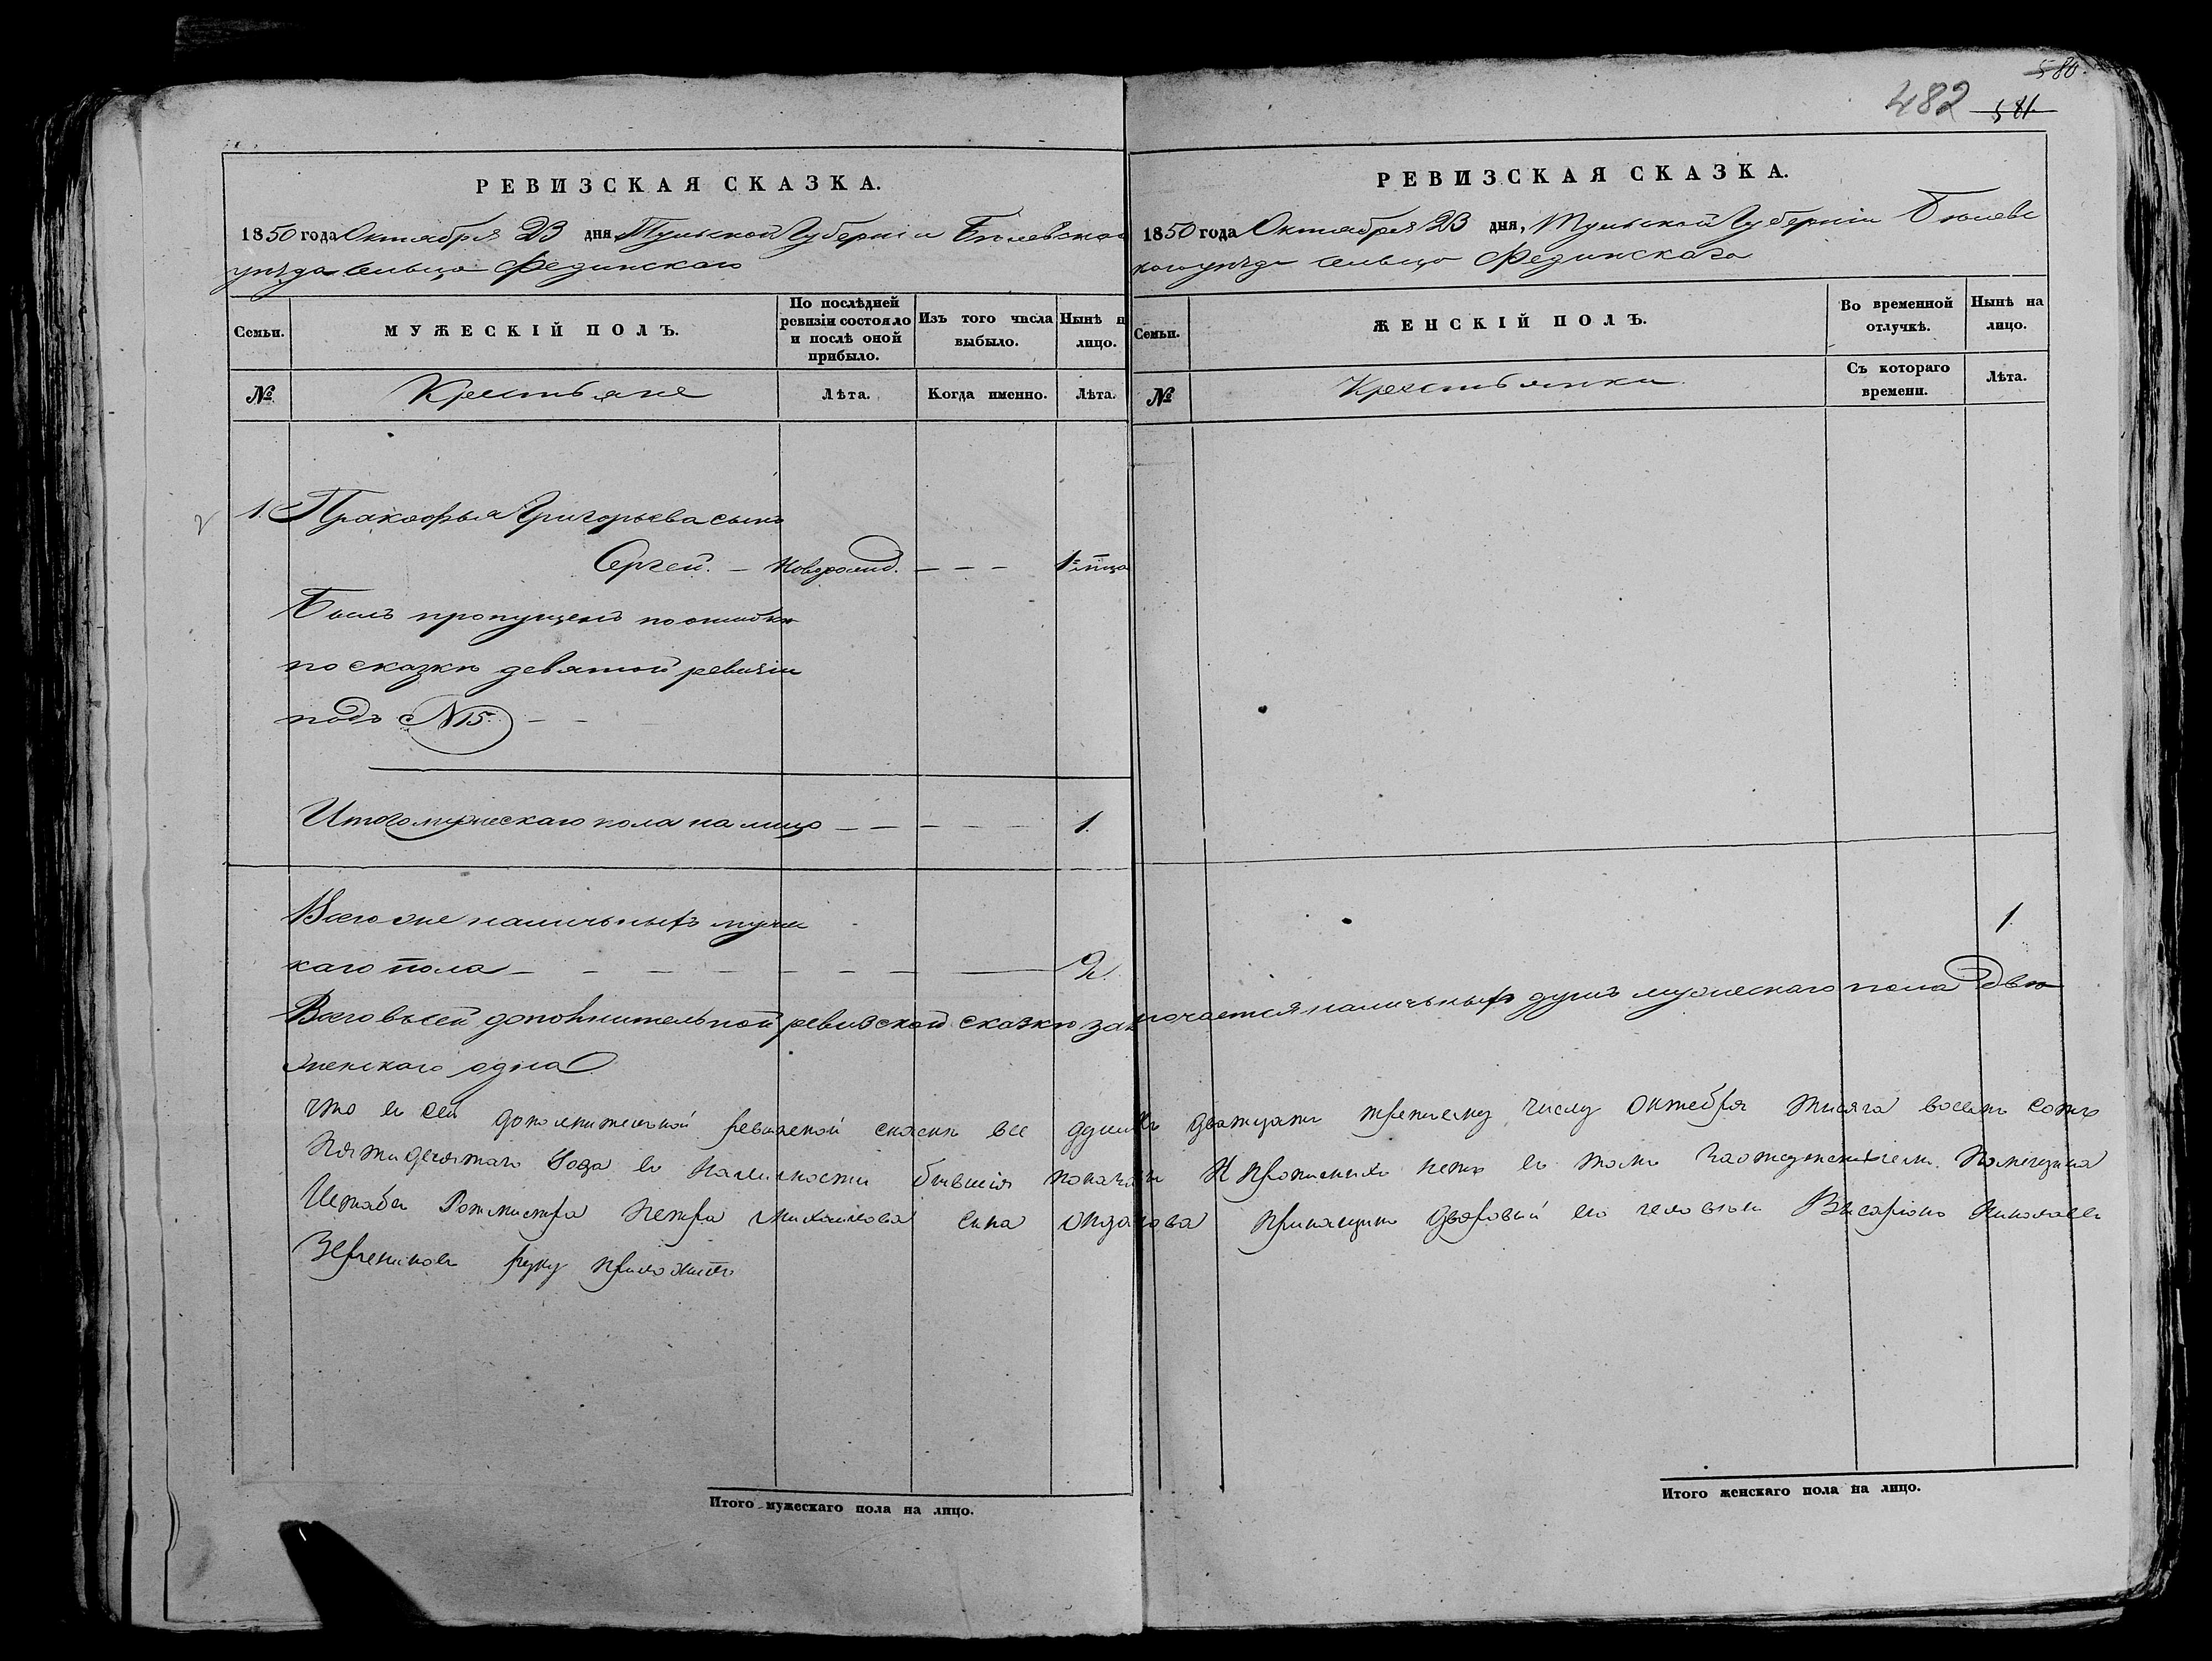 580.
482 581
РЕВИЗСКАЯ СКАЗКА.
1850 года Октября 23 дня Тульской Губерніи Бѣлевскаго
уѣзда сельцо Фединскаго
Семьи. МУЖЕСКІЙ ПОЛЪ. По послѣдней ревизіи состояло и послѣ оной прибыло. Изъ того числа выбыло. Нынѣ н лицо.
№ Крестьяне Лѣта. Когда именно. Лѣта.
1. Пракофья Григорьева сынъ
Сергей. – Новорожд. – – – 1
Былъ пропущенъ по ошибкѣ
по сказкѣ девятой ревизіи
подъ N 15. – –
Итого мужескаго пола на лицо – – – – 1.
Всего же наличныхъ мужес
каго пола – – – – – – – 2.
РЕВИЗСКАЯ СКАЗКА.
1850 года Октября 23 дня, Тульской Губерніи Бѣлевс
каго уѣзда сельцо Фединскаго
Семьи. ЖЕНСКІЙ ПОЛЪ. Во временной отлучкѣ. Нынѣ на лицо.
№ Крестьянки. Съ котораго времени. Лѣта.
1.
Всего в сей дополнительной ревизской сказке заключается наличныхъ душъ мужескаго пола двѣ
женскаго одна
что въ сей дополнительной ревизской сказки все души къ дватцать третьему числу Октебря тысяча восемь сотъ
Пятидесятаго Года въ наличности бывшія показаны И прописныхъ нетъ въ томъ Помещика
Штабъ Ротмистра Петра Михаилова сына Юдакова Приказщикъ дворовый его человекъ Висаріонъ Николаевъ
руку приложилъ
Итого мужескаго пола на лицо.
Итого женскаго пола на лицо.